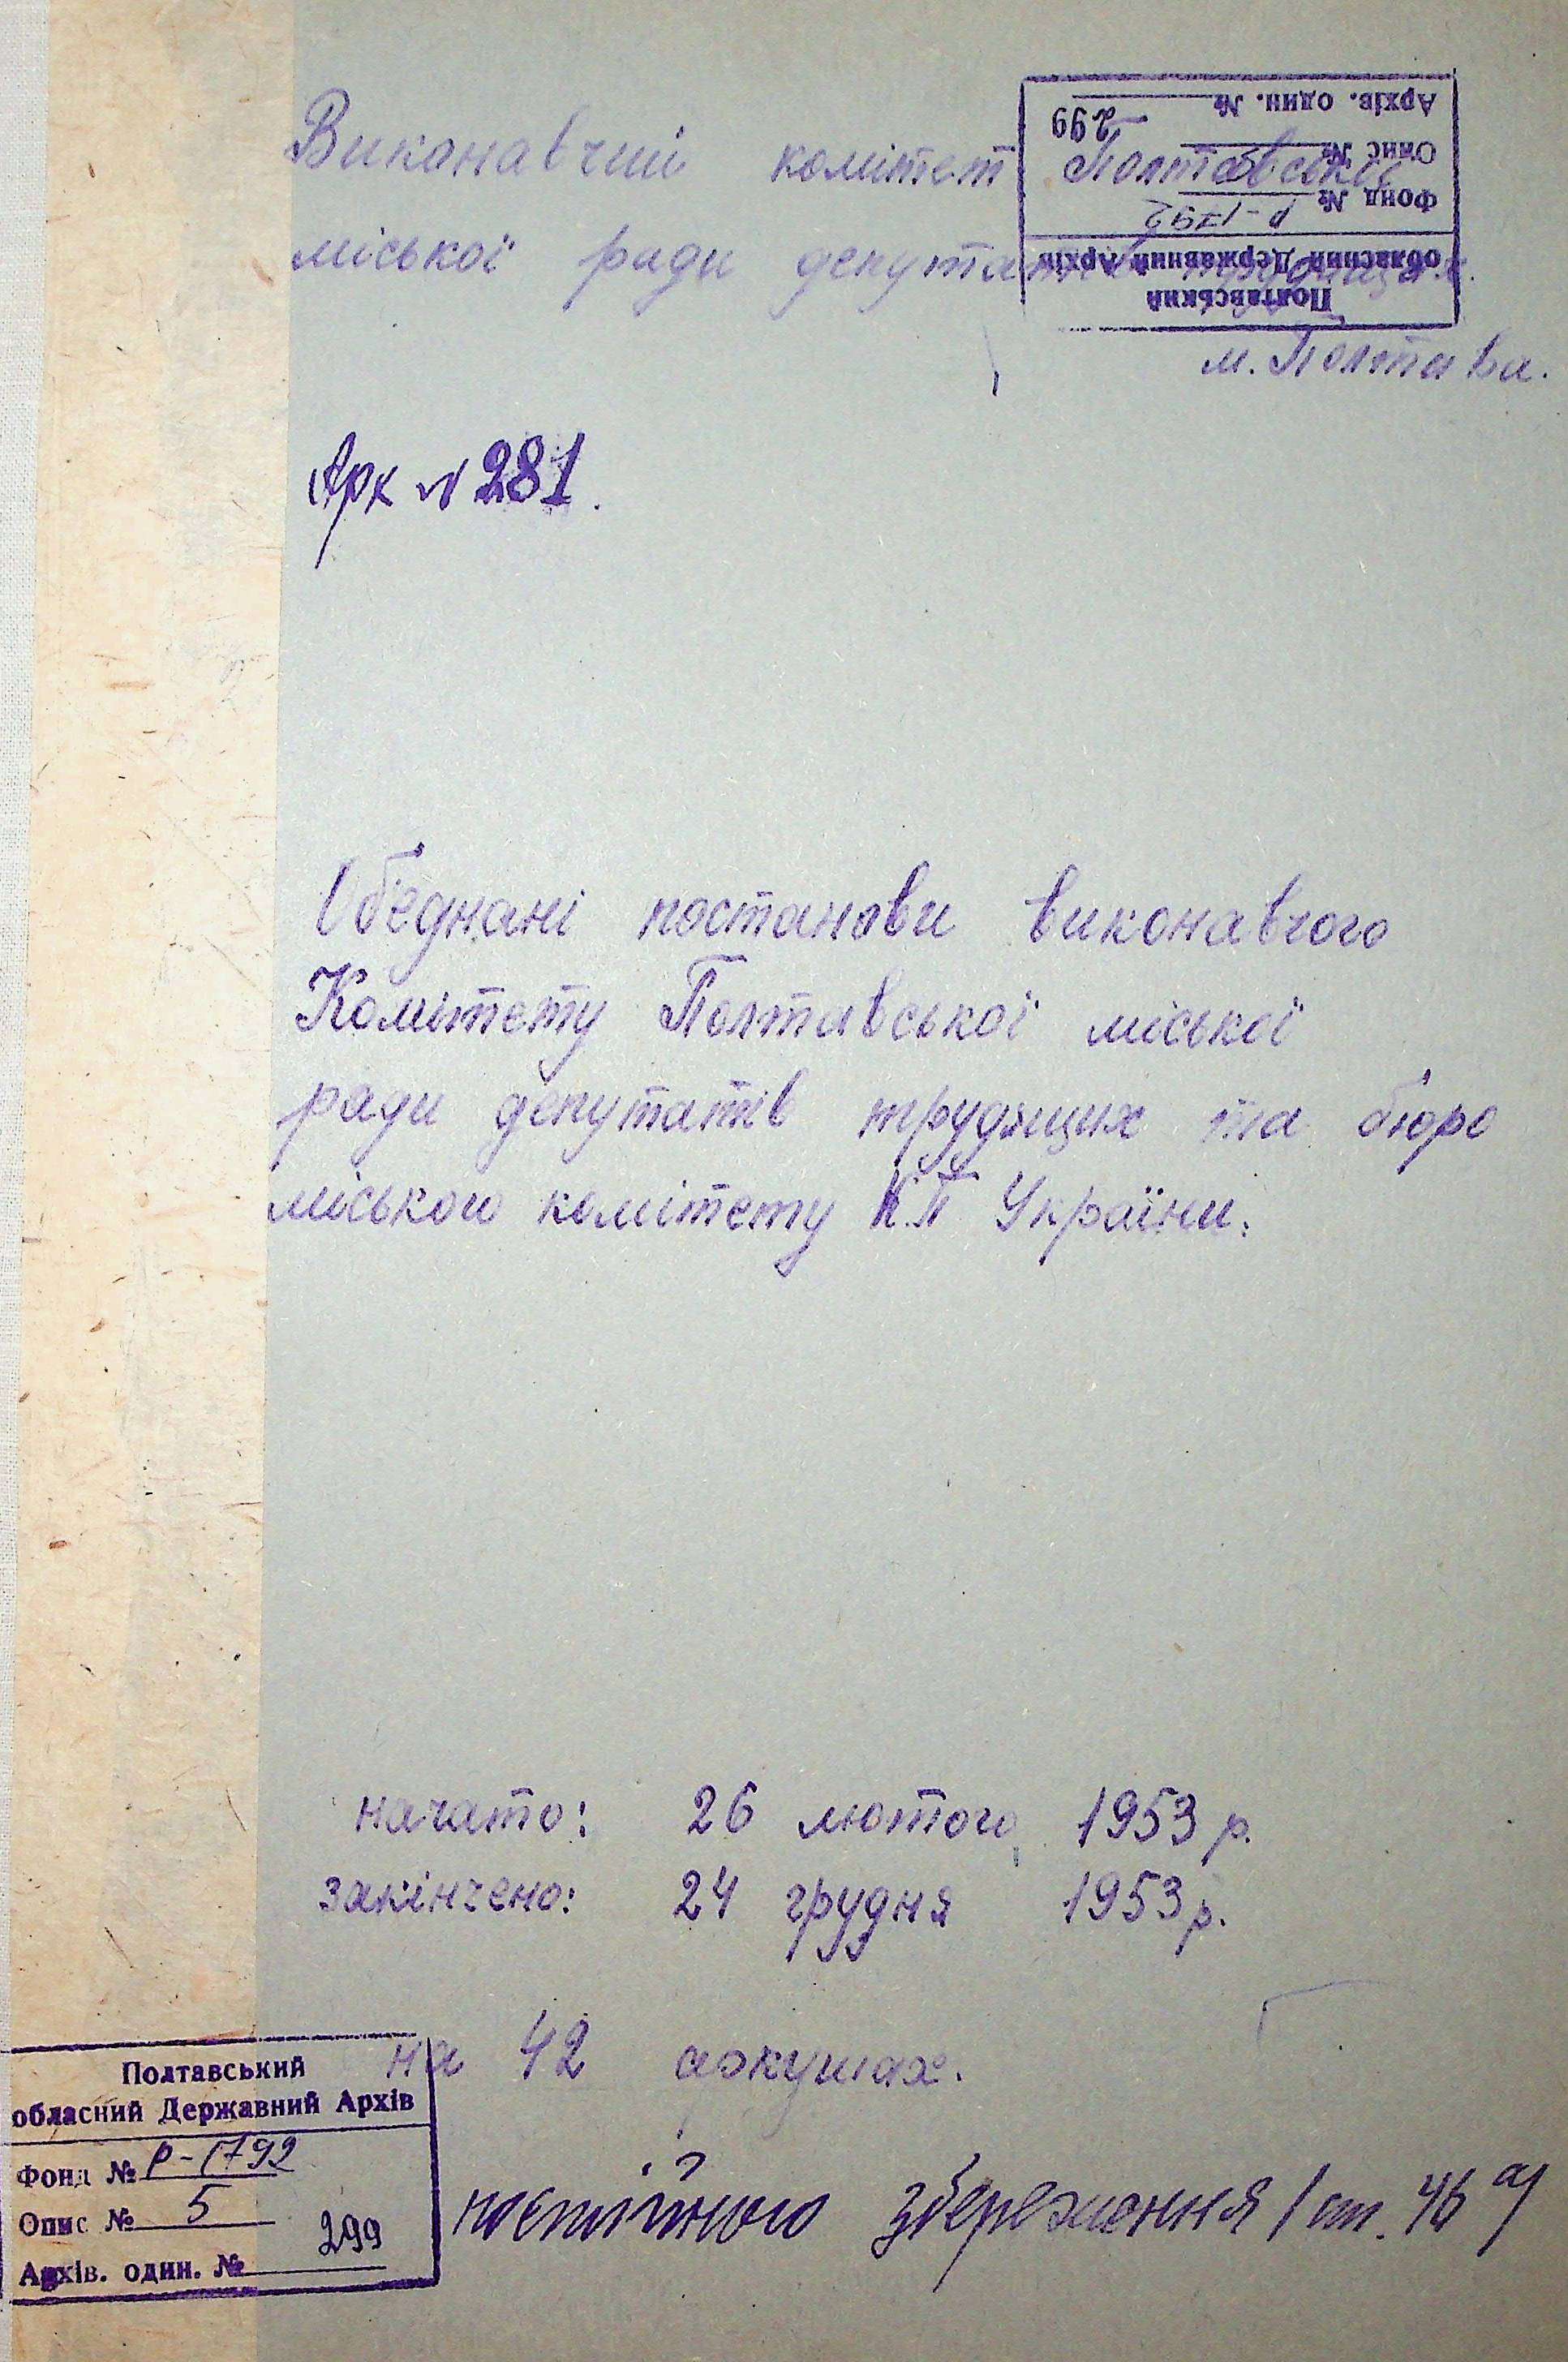 Виконавчий комітет Полтавської
міської ради депутатів трудящих.
м. Полтава.
Полтавський
обласний Державний Архів
Фонд № Р-1792
Опис №
Архів. один. № 299
Арх № 281.
Об'єднані постанови виконавчого
Комітету Полтавської міської
ради депутатів трудящих та бюро
міського комітету К.П України.
начато: 26 лютого 1953 р.
закінчено: 24 грудня 1953 р.
на 42 аркушах.
постійного збереження / ст. 46 а/
Полтавський
обласний Державний Архів
Фонд № Р-1792
Опис № 5
Архів. один. № 299